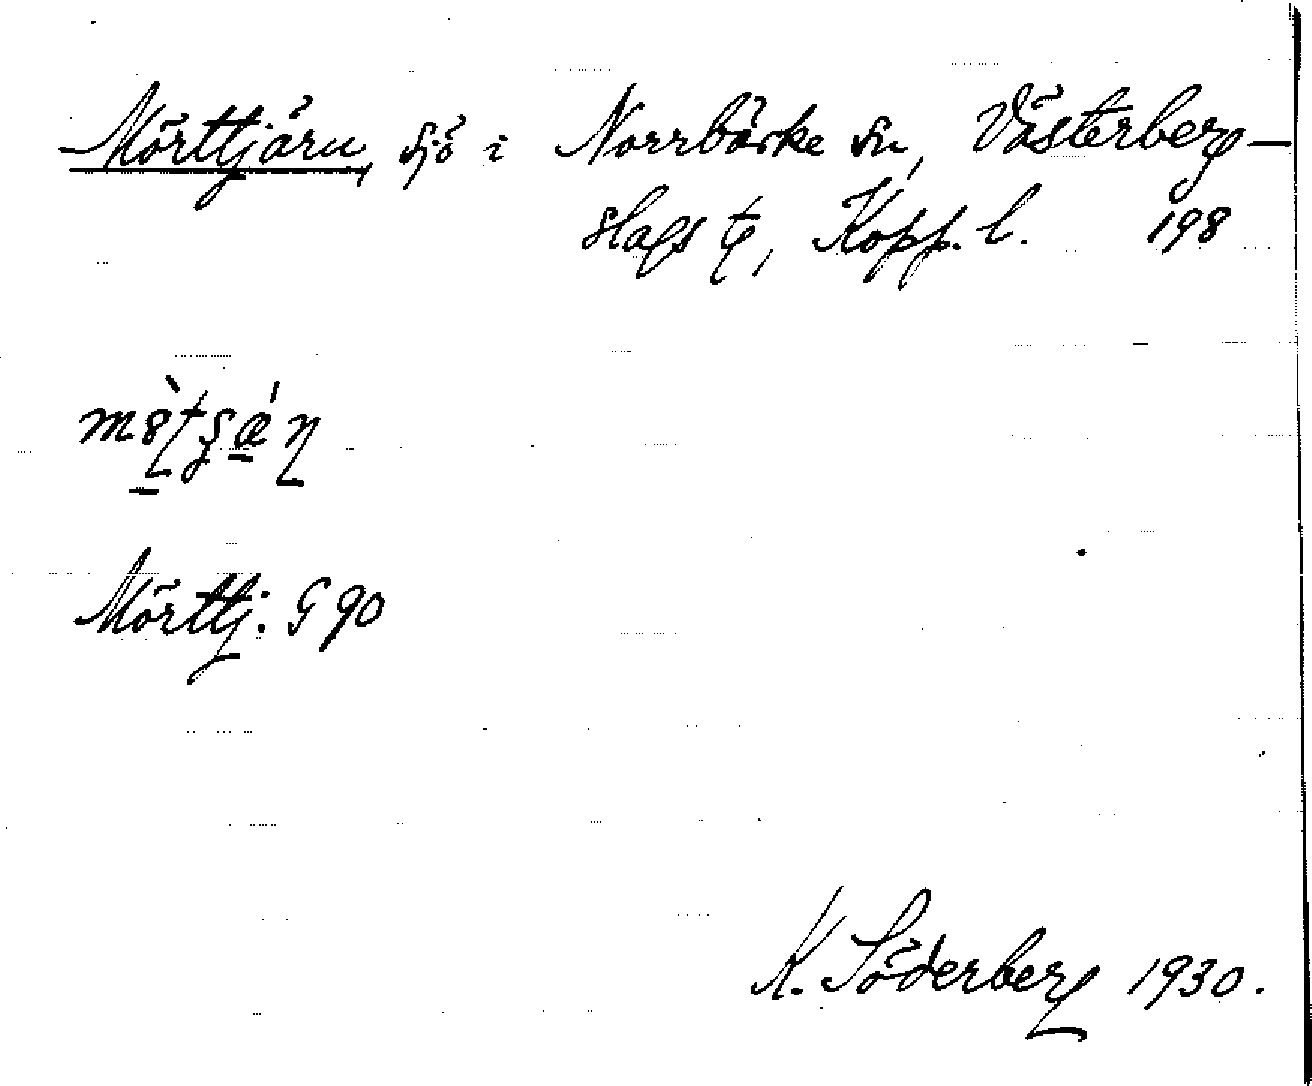 Mörttjärn, sjö i Norrbärke sn, Västerberg-
slags tg, Kopp. l. 198
Mörttj. G 90
K. Söderberg 1930.